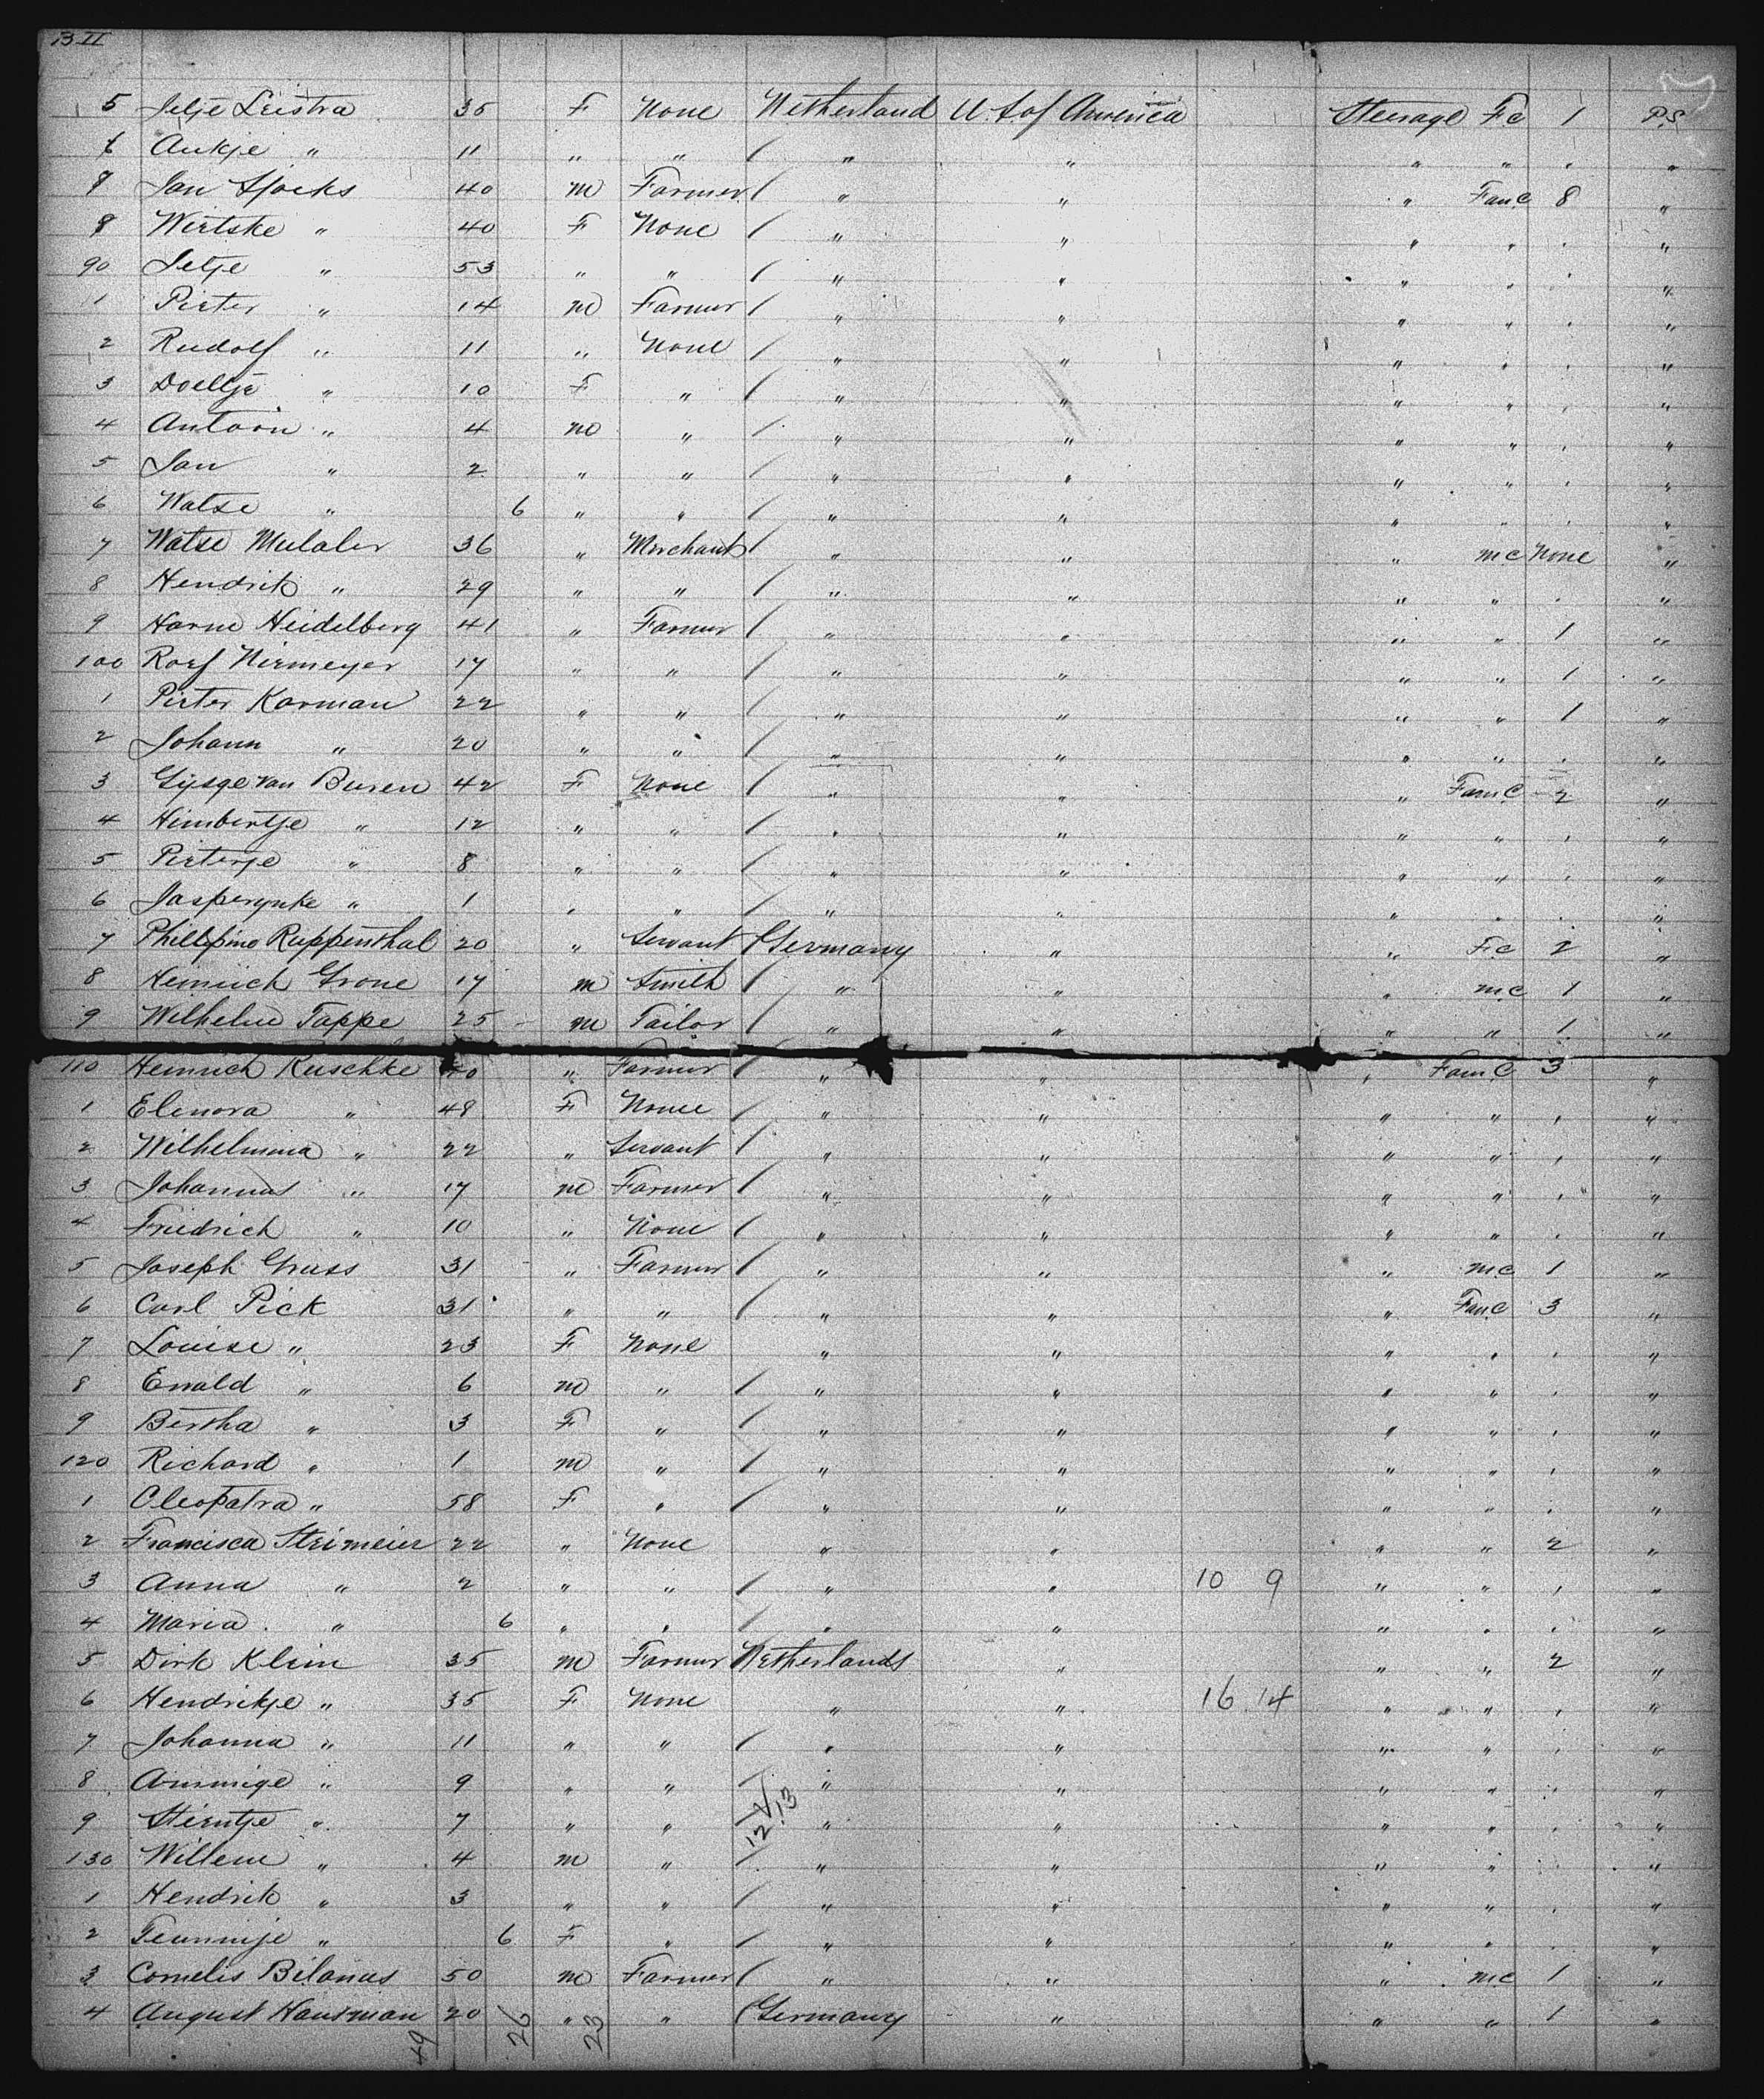 B II
5 Jetje Leistra 35 F None Netherland U.S. of America Steerage F.C 1 P.S.
6 Aukje " 11 " " " " " " " "
Jan Sjoeks 40 m Farmer " " " Fam C 8 "
Wietske " 40 F None " " " " " "
90 Jetje " 53 " " " " " " " "
1 Pieter " 14 m Farmer " " " " " "
2 Rudolf " 11 " None " " " " " "
3 Doeltje " 10 F " " " " " " "
4 Antoon " 4 m " " " " " " "
5 Jan " 2 " " " " " " " "
6 Watse " 6 " " " " " " " "
7 Watse Mulaler 36 " Merchant " " " m C None "
8 Hendrik " 29 " " " " " " " "
9 Harm Heidelberg 41 " Farmer " " " " 1 "
100 Roef Niemeyer 17 " " " " " " 1 "
1 Pieter Karman 22 " " " " " " 1 "
2 Johann " 20 " " " " " " " "
3 Gijsge van Buren 42 F None " " " Fam C 2 "
4 Himbertje " 12 " " " " " " " "
5 Pieterje " 8 " " " " " " " "
6 Jasperynke " 1 " " " " " " " "
7 Phillipino Ruppenthal 20 " Servant Germany " " F.C 2 "
8 Heinrich Grone 17 m Smith " " " m.C 1 "
9 Wilhelm Tappe 25 m Tailor " " " " 1 "
110 Heinrich Kuschke " Farmer " " " Fam C 3 "
1 Elenora " 48 F None " " " " " "
2 Wilhelmina " 22 " Servant " " " " " "
3 Johannas " 17 m Farmer " " " " " "
4 Friedrich " 10 " None " " " " " "
5 Joseph Gruss 31 " Farmer " " " m.C 1 "
6 Carl Pick 31 " " " " " Fam C 3 "
7 Louise " 23 F None " " " " " "
8 Ewald " 6 m " " " " " " "
9 Bertha " 3 F " " " " " " "
120 Richard " 1 m " " " " " " "
1 Cleopatra " 58 F " " " " " " "
2 Francisca Streimeier 22 " None " " " " 2 "
3 Anna " 2 " " " " 10 9 " " " "
4 Maria " 6 " " " " " " " "
5 Dirk Klein 35 m Farmer Netherlands " " " 2 "
6 Hendrikje " 35 F None " " 16 14 " " " "
7 Johanna " 11 " " " " " " " "
8 Ammige " 9 " " " " " " " "
9 Stientje " 7 " " 12 13 " " " " " "
130 Willem " 4 m " " " " " " "
1 Hendrik " 3 " " " " " " " "
2 Teunnije " 6 F " " " " " " "
3 Cornelis Bilanus 50 m Farmer " " " m.C 1 "
4 August Hausman 20 " " Germany " " " 1 "
49 26 23